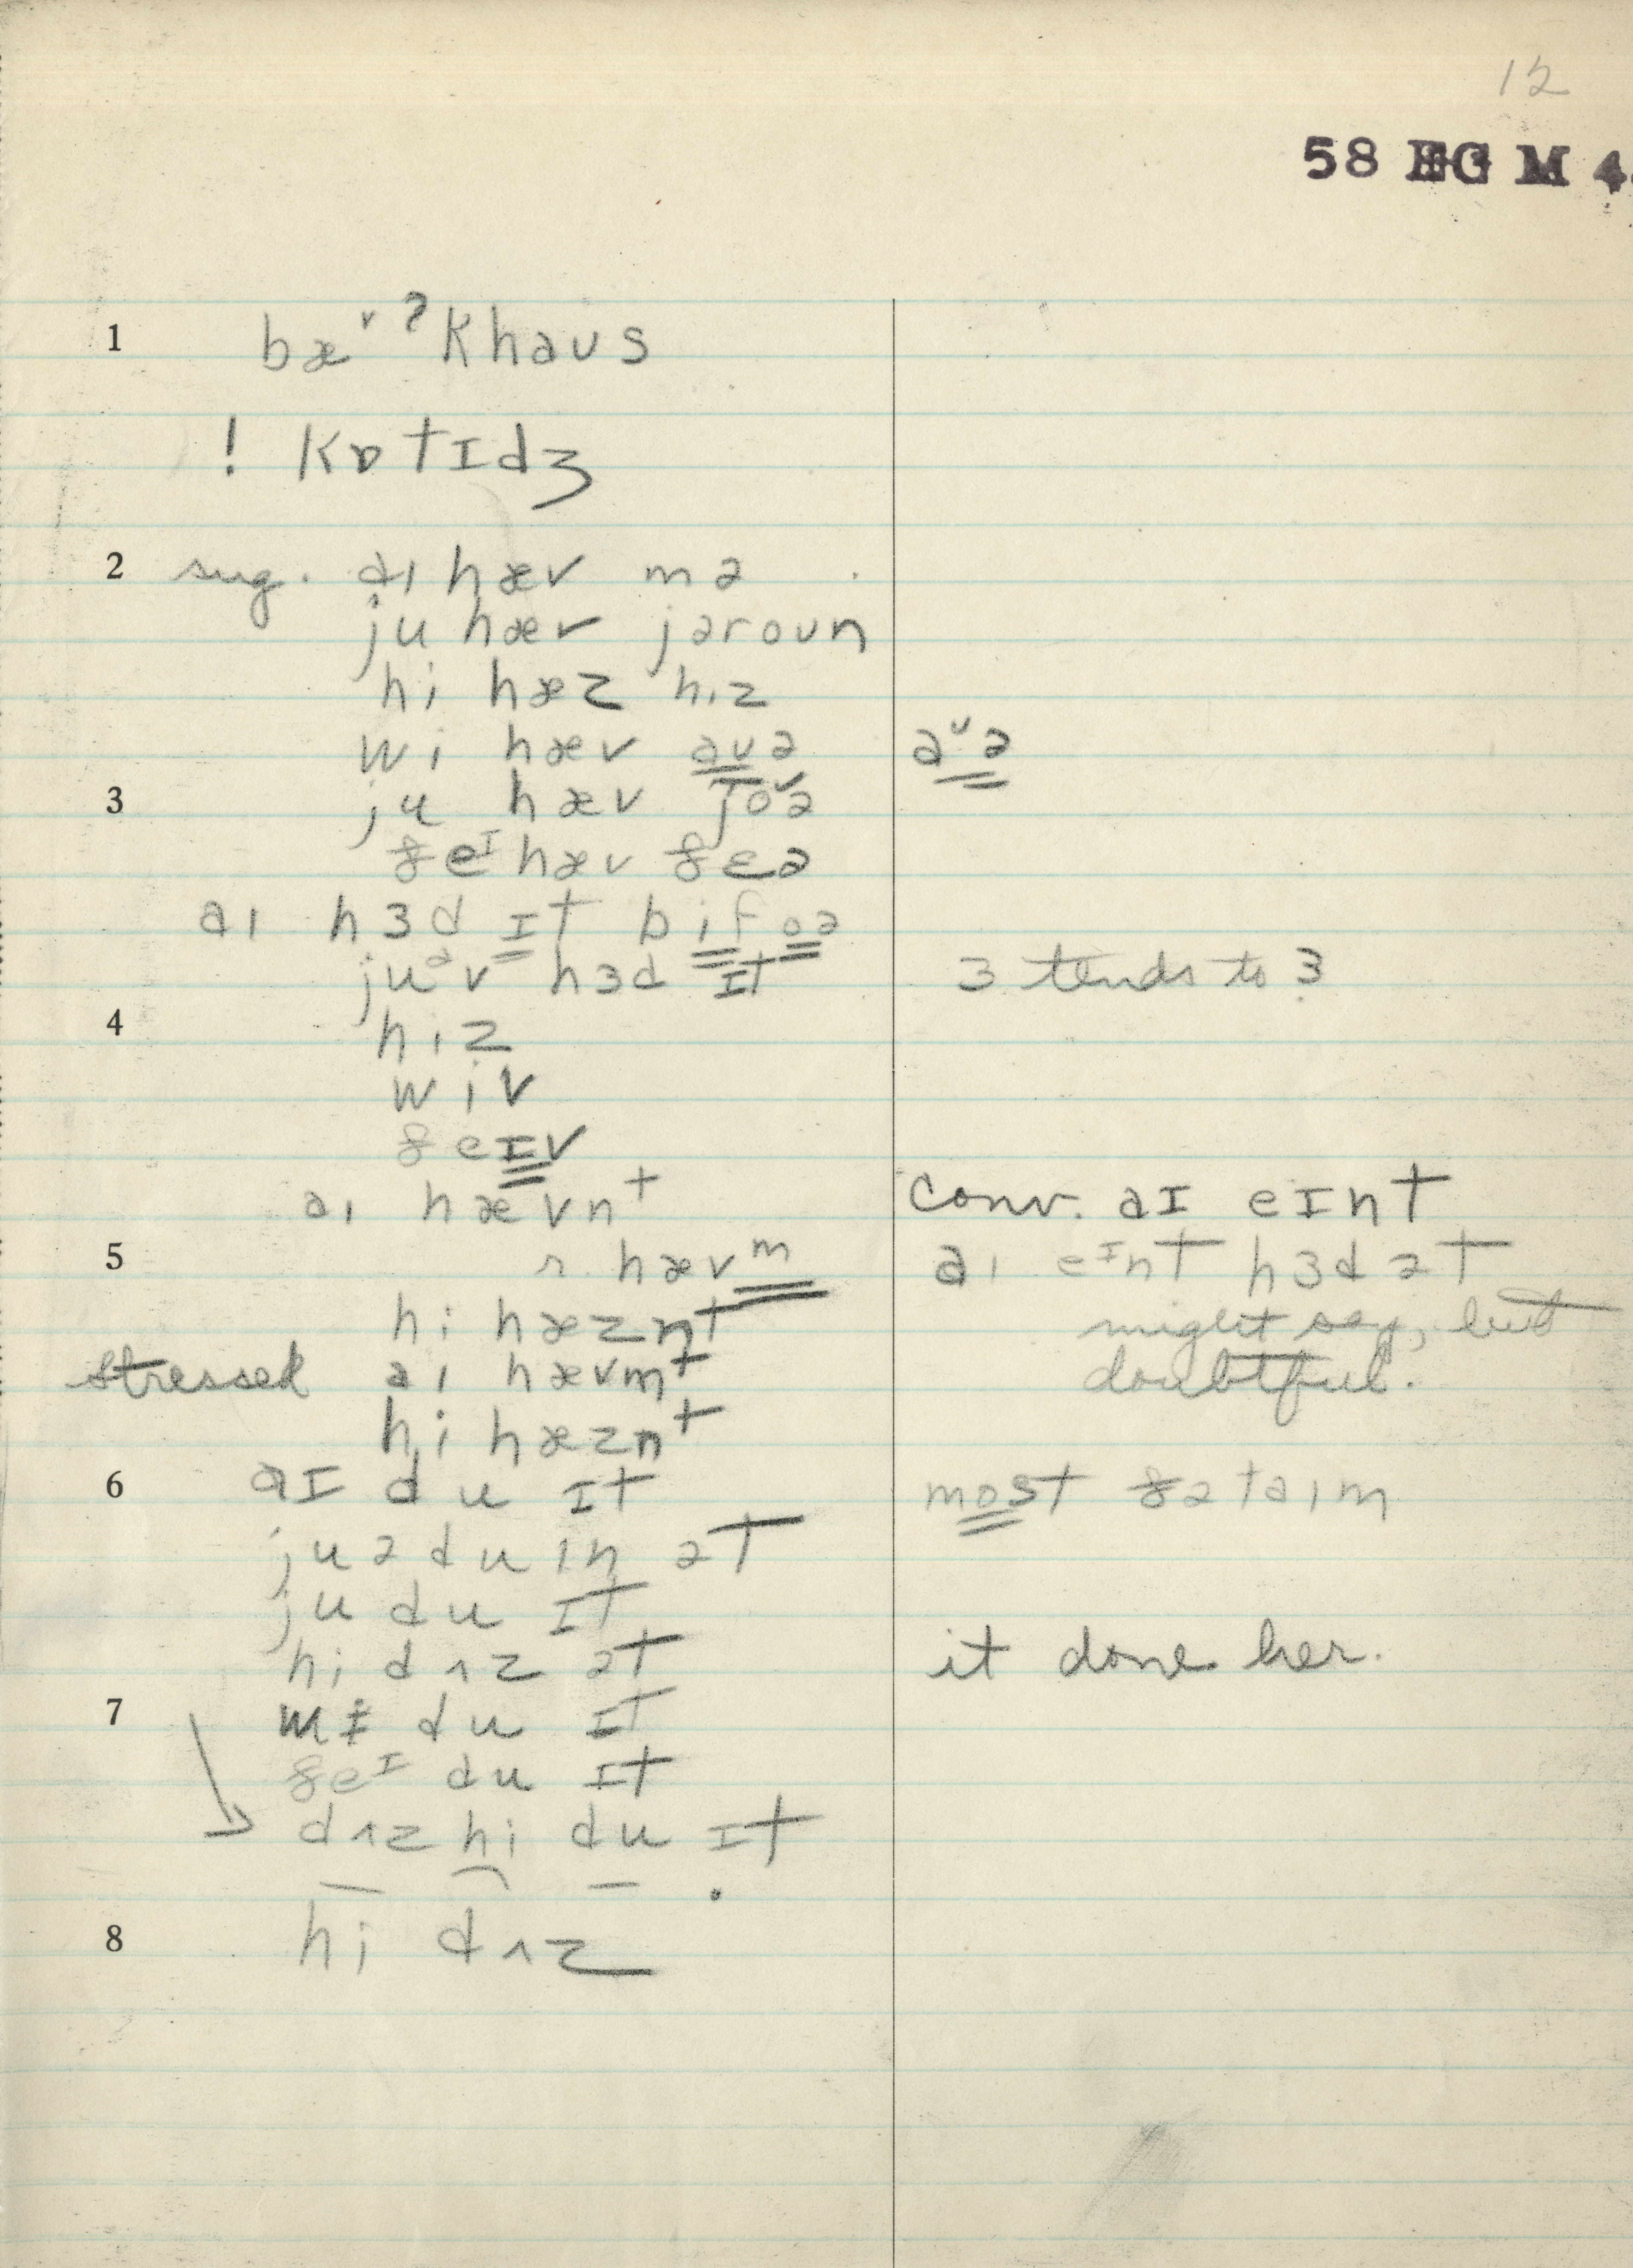 12
58 EG M 4
1 bæᵛ ʔkhaus
! kɒtɪdʒ
2 sug. aɪ hæv mə
ju hæv jəroun
hi hæz hɪz
wi hæv auə aᵘə
3 ju hæv joᵘə
ðeᴵ hæv ðɛə
aɪ hɜd ɪt bifoə
juᵊv hɜd ɪt ɜ tends to ɜ
4 hiz
wiv
ðeɪv
aɪ hævnt conv. aɪ eɪnt
5 hævm aɪ eᴵnt hɜd ət
hi hæznt might say, but
stressed aɪ hævmt doubtful.
hi hæznt
6 aɪ du ɪt most ðə taɪm
juə duɪn ət
ju du ɪt
hi dʌz ət it done her.
7 wi du ɪt
ðeᴵ du ɪt
dʌz hi du ɪt
8 hi dʌz